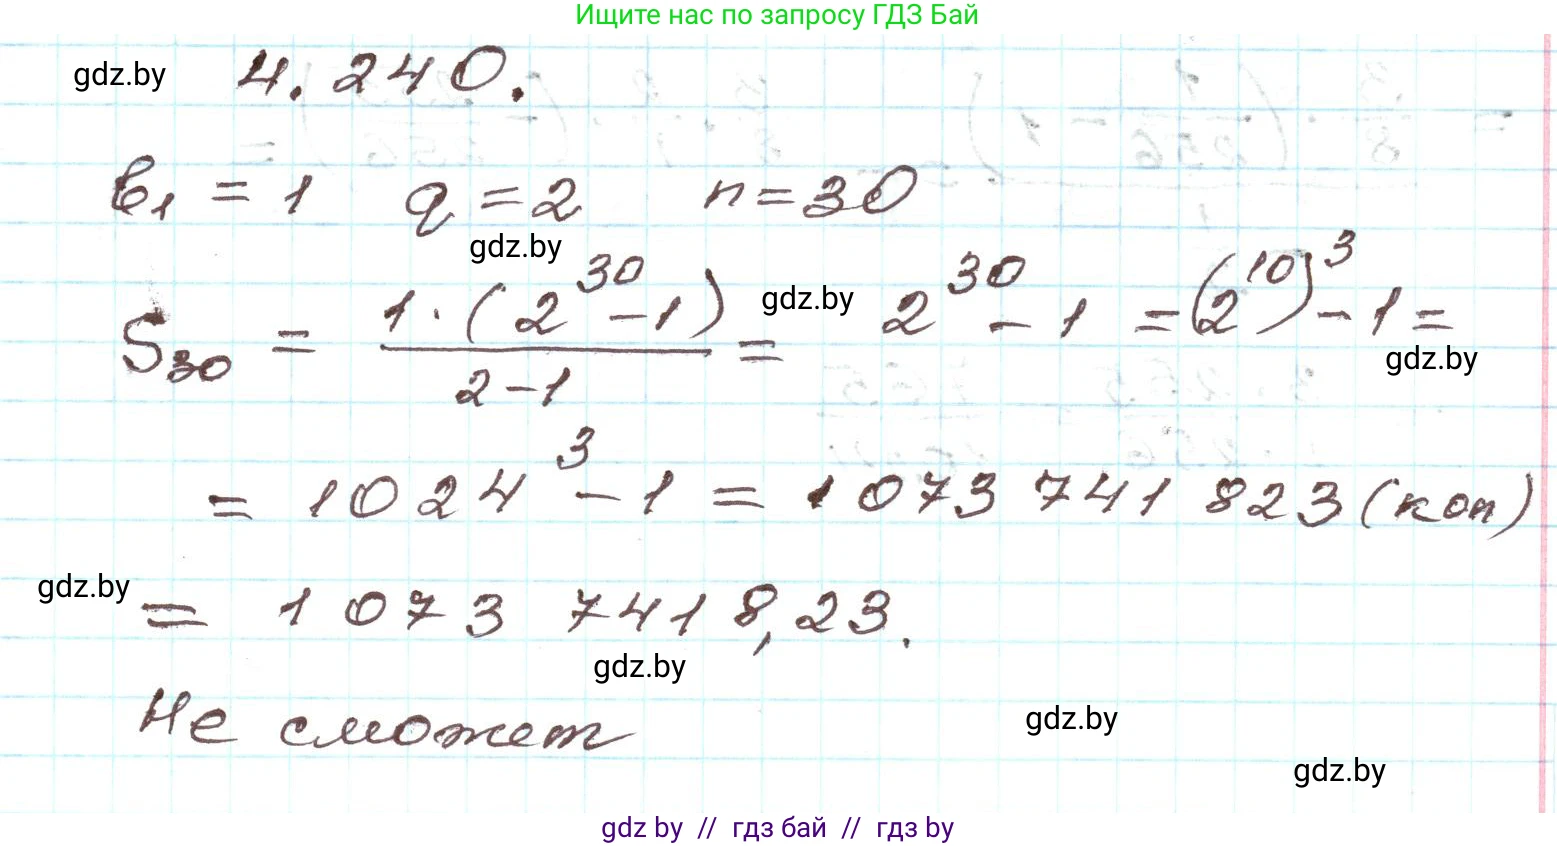 Ищите нас по запросу ГДЗ Бай
gdz.by 4.240.
b₁ = 1 q = 2 n = 30
gdz.by
S₃₀ = 1·(2³⁰-1) / 2-1 = gdz.by 2³⁰ - 1 = (2¹⁰)³ - 1 =
gdz.by
= 1024³ - 1 = 1 073 741 823 (коп)
gdz.by = 1 073 741 8,23.
gdz.by
Не сможет
gdz.by
gdz.by
gdz by // гдз бай // гдз by